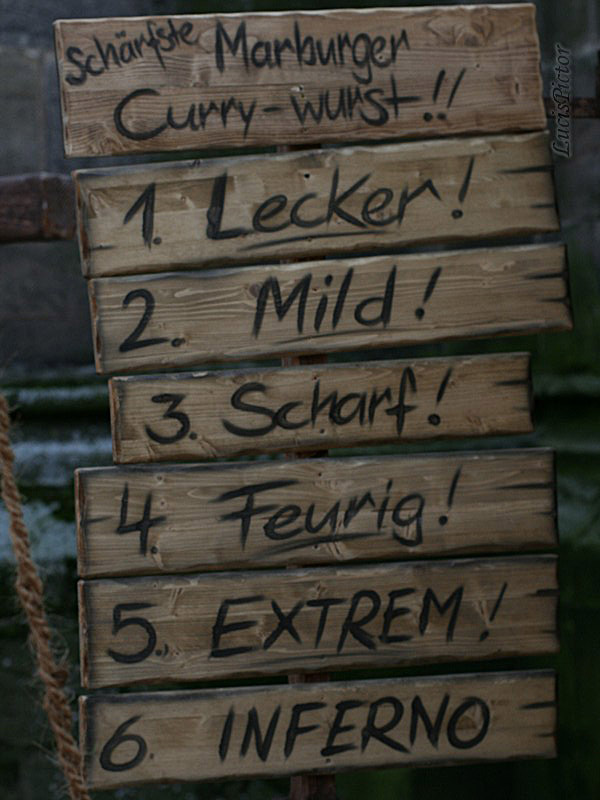 Schärfste Marburger
Curry-wurst!!
1. Lecker!
2. Mild!
3. Scharf!
4. Feurig!
5. EXTREM!
6. INFERNO
LucisPictor